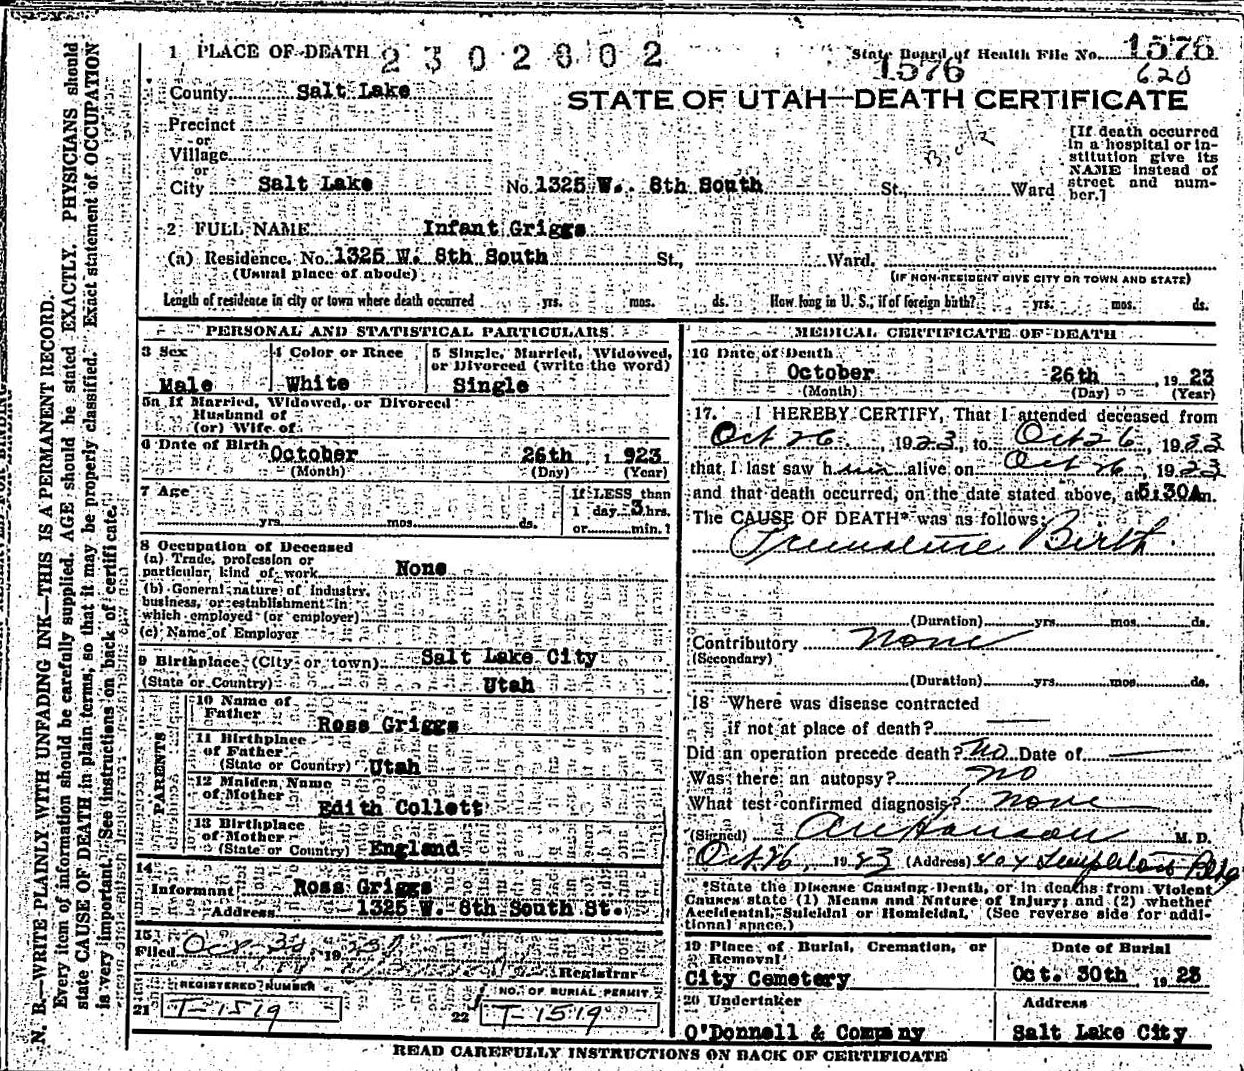 1 PLACE OF DEATH 2302802 State Board of Health File No. 1576
1576 620
County Salt Lake
STATE OF UTAH—DEATH CERTIFICATE
Precinct
or
Village
or
City Salt Lake No. 1325 W. 8th South St., Ward
[If death occurred
in a hospital or in-
stitution give its
NAME instead of
street and num-
ber.]
2 FULL NAME Infant Griggs
(a) Residence. No. 1325 W. 8th South St., Ward.
(Usual place of abode) (IF NON-RESIDENT GIVE CITY OR TOWN AND STATE)
Length of residence in city or town where death occurred yrs. mos. ds. How long in U. S., if of foreign birth? yrs. mos. ds.
PERSONAL AND STATISTICAL PARTICULARS
3 Sex 4 Color or Race 5 Single, Married, Widowed,
or Divorced (write the word)
Male White Single
5a If Married, Widowed, or Divorced
Husband of
(or) Wife of
6 Date of Birth October 26th 1923
(Month) (Day) (Year)
7 Age If LESS than
1 day 3 hrs.
yrs. mos. ds. or min.?
8 Occupation of Deceased
(a) Trade, profession or
particular, kind of work None
(b) General nature of industry,
business, or establishment in
which employed (or employer)
(c) Name of Employer
9 Birthplace (City or town) Salt Lake City
(State or Country) Utah
PARENTS
10 Name of
Father Ross Griggs
11 Birthplace
of Father
(State or Country) Utah
12 Maiden Name
of Mother Edith Collett
13 Birthplace
of Mother
(State or Country) England
14
Informant Ross Griggs
Address 1325 W. 8th South St.
15
Filed Oct 30 1923
Registrar
REGISTERED NUMBER NO. OF BURIAL PERMIT
21 T-1519 22 T-1519
MEDICAL CERTIFICATE OF DEATH
16 Date of Death
October 26th, 1923
(Month) (Day) (Year)
17. I HEREBY CERTIFY, That I attended deceased from
Oct 26, 1923, to Oct 26, 1923
that I last saw him alive on Oct 26, 1923
and that death occurred, on the date stated above, at 5:30A m.
The CAUSE OF DEATH* was as follows:
Premature Birth.
(Duration) yrs. mos. ds.
Contributory None
(Secondary)
(Duration) yrs. mos. ds.
18 Where was disease contracted
if not at place of death?
Did an operation precede death? No Date of
Was there an autopsy? No
What test confirmed diagnosis? None
(Signed) M. D.
Oct 26, 1923 (Address) 404 Templeton Bldg
*State the Disease Causing Death, or in deaths from Violent
Causes state (1) Means and Nature of Injury; and (2) whether
Accidental, Suicidal or Homicidal. (See reverse side for addi-
tional space.)
19 Place of Burial, Cremation, or Date of Burial
Removal
City Cemetery Oct. 30th 1923
20 Undertaker Address
O'Donnell & Company Salt Lake City
READ CAREFULLY INSTRUCTIONS ON BACK OF CERTIFICATE
N. B.—WRITE PLAINLY WITH UNFADING INK—THIS IS A PERMANENT RECORD.
Every item of information should be carefully supplied. AGE should be stated EXACTLY. PHYSICIANS should
state CAUSE OF DEATH in plain terms, so that it may be properly classified. Exact statement of OCCUPATION
is very important. See instructions on back of certificate.